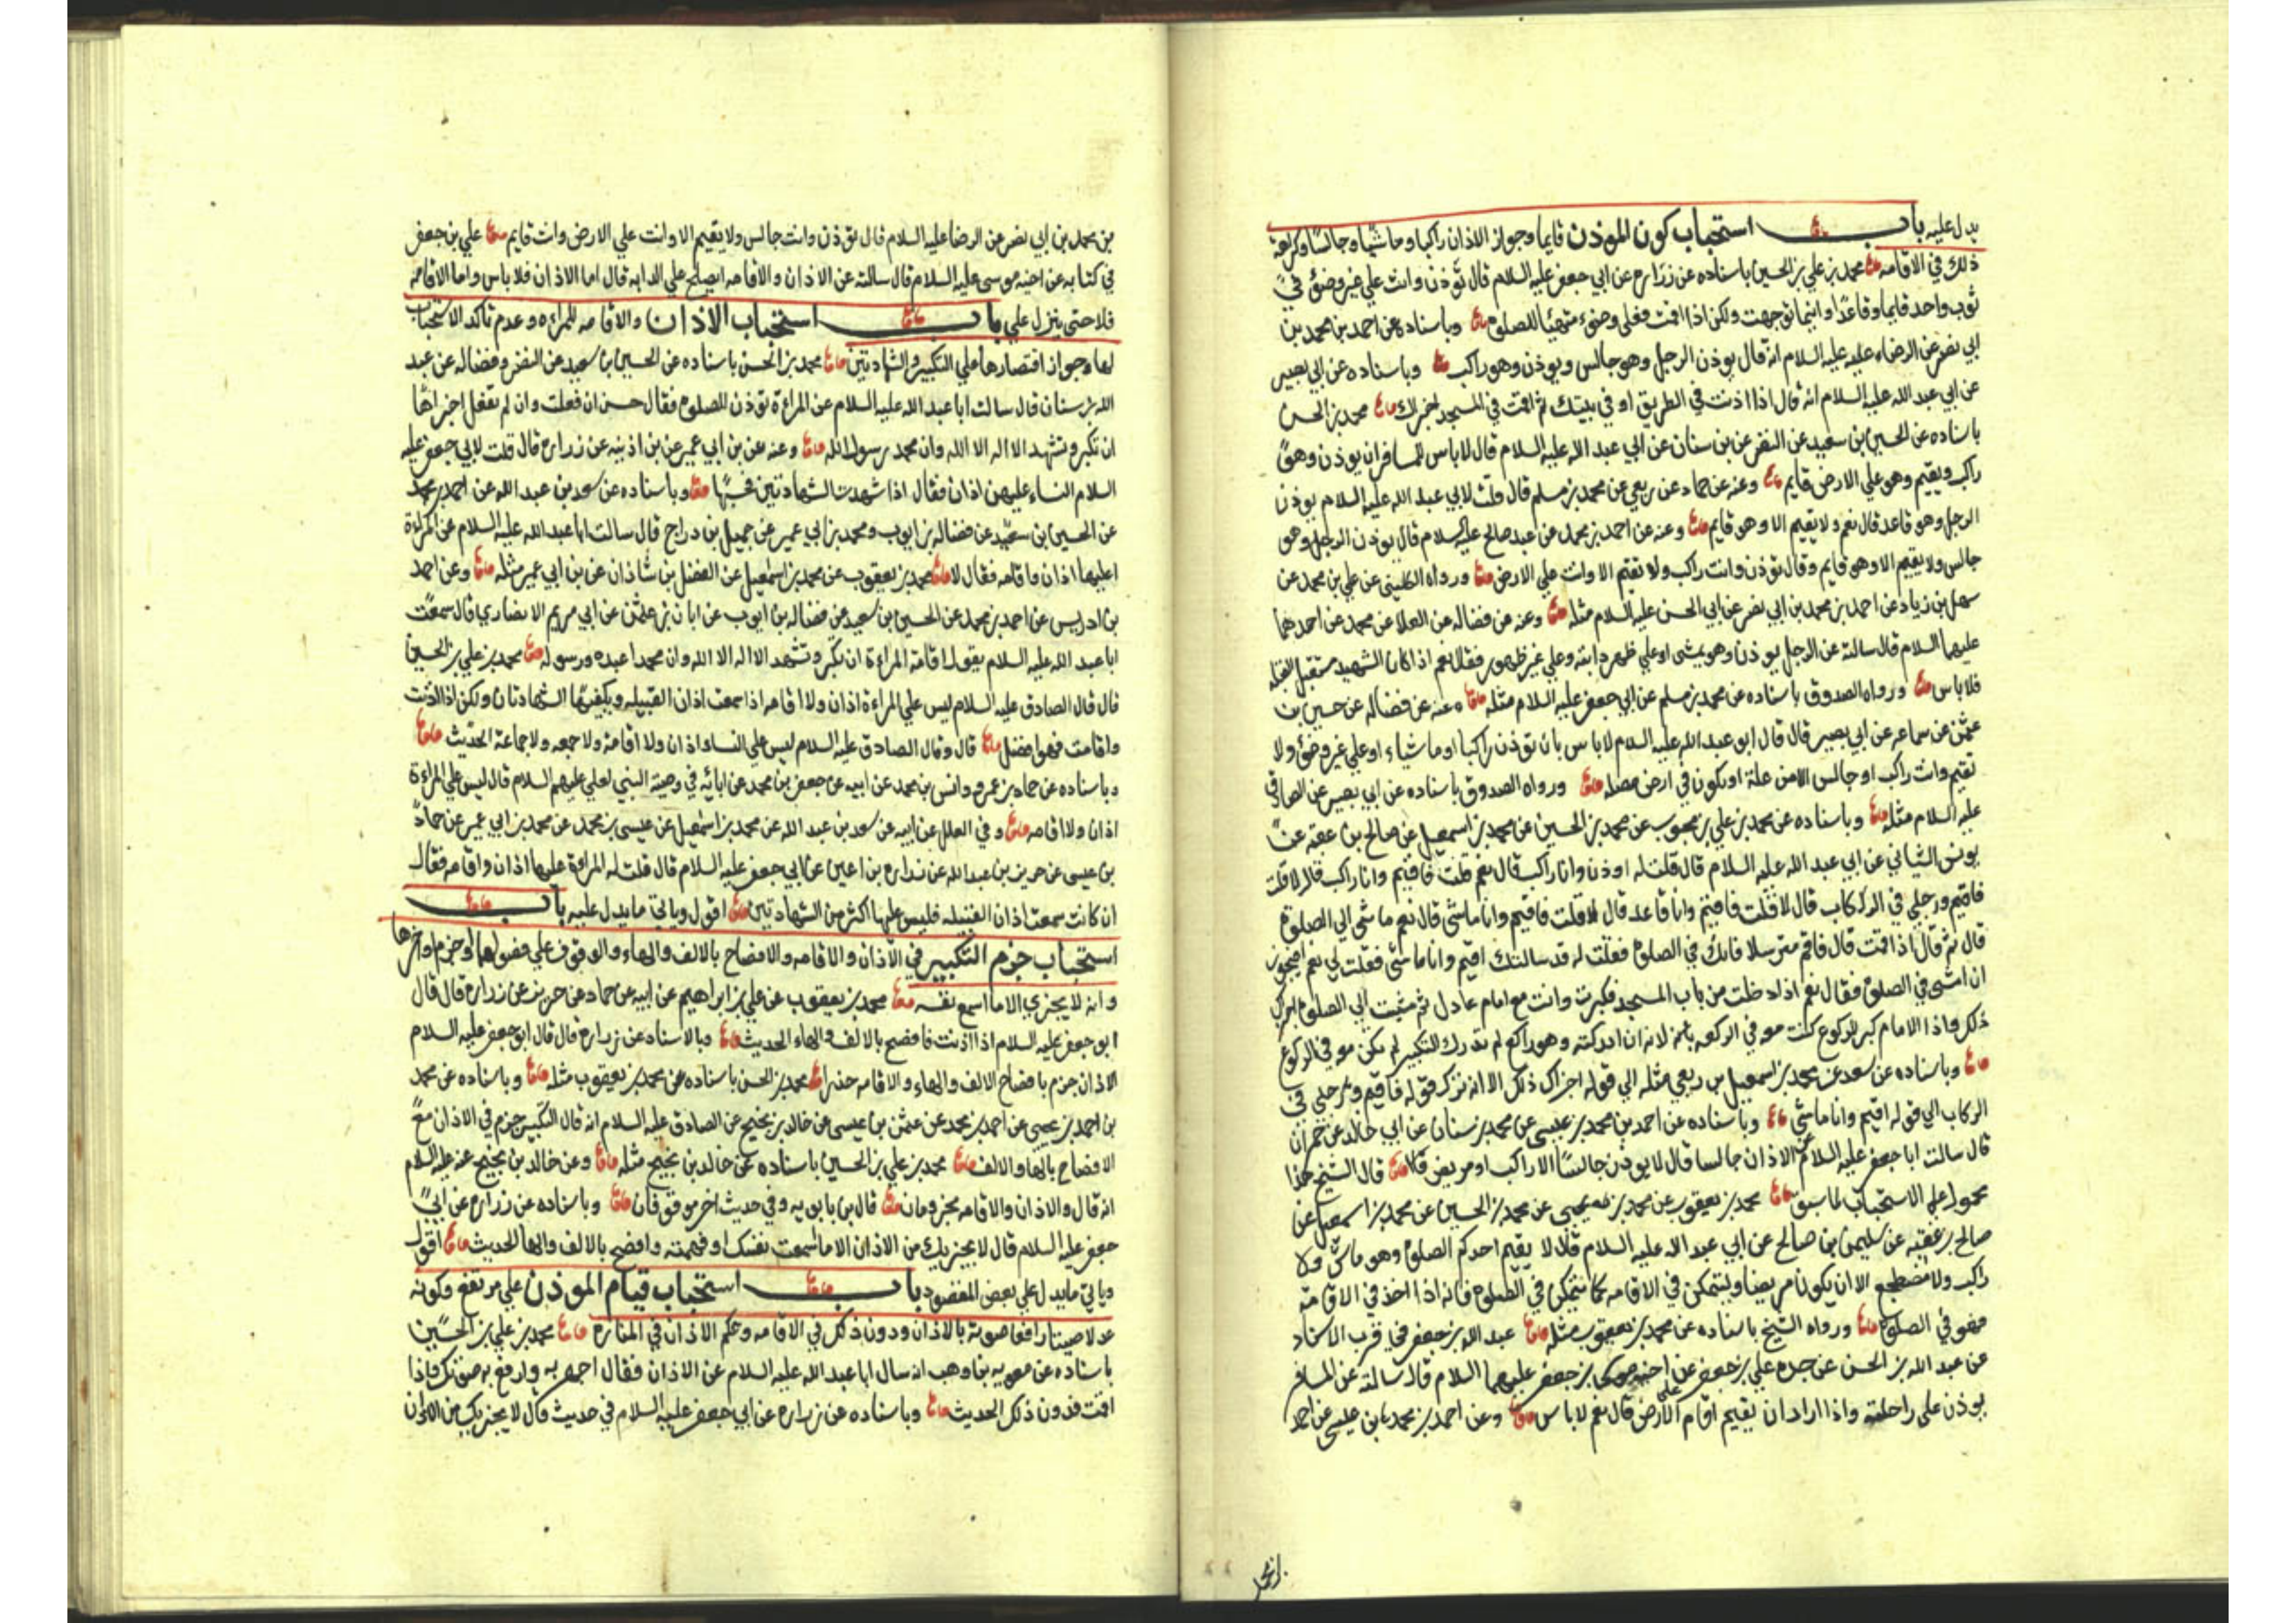 يدل عليه باب استحباب كون المؤذن قايما وجواز الاذان راكبا وماشيا وجالسا وكراهة
ذلك في الاقامه محمد بن علي بن الحسين باسناده عن زراره عن ابي جعفر عليه السلام قال تؤذن وانت علي غير وضوء في
ثوب واحد قايما وقاعدا واينما توجهت ولكن اذا اقمت فعلي وضوء متهيئا للصلوة وباسناده عن احمد بن محمد بن
ابي نصر عن الرضاء عليه عليه السلام انه قال يوذن الرجل وهو جالس ويوذن وهو راكب وباسناده عن ابي بصير
عن ابي عبد الله عليه السلام انه قال اذا اذنت في الطريق او في بيتك ثم اقمت في المسجد اجزاك محمد بن الحسن
باسناده عن الحسين بن سعيد عن النضر عن بن سنان عن ابي عبد الله عليه السلام قال لا باس للمسافر ان يوذن وهو
راكب ويقيم وهو علي الارض قايم وعنه عن حماد عن ربعي عن محمد بن مسلم قال قلت لابي عبد الله عليه السلام يوذن
الرجل وهو قاعد قال نعم ولا يقيم الا وهو قايم وعنه عن احمد بن محمد عن عبد صالح عليه السلام قال يوذن الرجل وهو
جالس ولا يقيم الا وهو قايم وقال تؤذن وانت راكب ولا تقيم الا وانت علي الارض ورواه الكليني عن علي بن محمد عن
سهل بن زياد عن احمد بن محمد بن ابي نصر عن ابي الحسن عليه السلام مثله وعنه عن فضاله عن العلا عن محمد عن احدهما
عليهما السلام قال سالته عن الرجل يوذن وهو يمشي او علي ظهر دابته وعلي غير ظهور فقال نعم اذا كان الشهيد مستقبل القبله
فلا باس ورواه الصدوق باسناده عن محمد بن مسلم عن ابي جعفر عليه السلام مثله وعنه عن فضاله عن حسين بن
عثمن عن سماعه عن ابي بصير قال قال ابو عبد الله عليه السلام لا باس بان تؤذن راكبا او ماشياء او علي غير وضوء ولا
تقيم وانت راكب او جالس الا من علة او تكون في ارض ورواه الصدوق باسناده عن ابي بصير عن الصادق
عليه السلام مثله وباسناده عن محمد بن علي بن محبوب عن محمد بن الحسين عن محمد بن اسمعيل عن صالح بن عقبه عن
يونس الشيباني عن ابي عبد الله عليه السلام قال قلت له اوذن وانا راكب قال نعم قلت فاقيم وانا راكب قال لا قلت
فاقيم ورجلي في الركاب قال لا قلت فاقيم وانا قاعد قال لا قلت فاقيم وانا ماشي قال نعم ماشي الي الصلوة
قال ثم قال اذا اقمت قال فاقم مترسلا فانك في الصلوة فقلت له قد سالتك اقيم وانا ماشي فقلت لي نعم افيجوز
ان امشي في الصلوة فقال نعم اذا دخلت من باب المسجد فكبرت وانت مع امام عادل ثم مشيت الي الصلوة اجزاك
ذلك واذا الامام كبر للركوع كنت معه في الركعه لانه ان ادركته وهو راكع لم تدرك التكبير لم تكن معه في الركوع
وباسناده عن سعد عن محمد بن اسمعيل بن ربعي مثله الي قوله اجزاك ذلك الا انه ترك قوله فاقيم ورجلي في
الركاب الي قوله اقيم وانا ماشي وباسناده عن احمد بن محمد بن عيسي عن محمد بن سنان عن ابي خالد عن حمران
قال سالت ابا جعفر عليه السلام عن الاذان جالسا قال لا يوذن جالسا الا راكب او مريض قال الشيخ هذا
محمول علي الاستحباب لما سبق محمد بن يعقوب عن محمد بن يحيي عن محمد بن الحسين عن محمد بن اسمعيل عن
صالح بن عقبه عن سليمن بن صالح عن ابي عبد الله عليه السلام قال لا يقيم احدكم الصلوة وهو ماش ولا
راكب ولا مضطجع الا ان يكون مريضا وليتمكن في الاقامه كما يتمكن في الصلوة فانه اذا اخذ في الاقامة
فهو في الصلوة ورواه الشيخ باسناده عن محمد بن يعقوب مثله عبد الله بن جعفر في قرب الاسناد
عن عبد الله بن الحسن عن جده علي بن جعفر عن اخيه موسي بن جعفر عليهما السلام قال سالته عن المسافر
يوذن علي راحلته واذا اراد ان يقيم اقام علي الارض قال نعم لا باس وعن احمد بن محمد بن عيسي عن احمد
بن محمد
بن محمد بن ابي نصر عن الرضا عليه السلام قال تؤذن وانت جالس ولا يقيم الا وانت علي الارض وانت قايم علي بن جعفر
في كتابه عن اخيه موسي عليه السلام قال سالته عن الاذان والاقامه ايصلح علي الدابه قال اما الاذان فلا باس واما الاقامه
فلا حتي ينزل علي باب استحباب الاذان والاقامه للمراه وعدم تاكد الاستحباب
لها وجواز اقتصارها علي التكبير والشهادتين محمد بن الحسن باسناده عن الحسين بن سعيد عن النضر وفضاله عن عبد
الله بن سنان قال سالت ابا عبد الله عليه السلام عن المراءة تؤذن للصلوة فقال حسن ان فعلت وان لم تفعل اجزاها
ان تكبر وتشهد الا اله الا الله وان محمد رسول الله وعنه عن بن ابي عمير عن بن اذينه عن زراره قال قلت لابي جعفر عليه
السلام النساء عليهن اذان فقال اذا شهدت الشهادتين فحسبها وباسناده عن سعد بن عبد الله عن احمد بن محمد
عن الحسين بن سعيد عن فضاله بن ايوب ومحمد بن ابي عمير عن جميل بن دراج قال سالت ابا عبد الله عليه السلام عن المراءة
اعليها اذان واقامه فقال لا محمد بن يعقوب عن محمد بن اسمعيل عن الفضل بن شاذان عن بن ابي عمير مثله وعن احمد
بن ادريس عن احمد بن محمد عن الحسين بن سعيد عن فضاله بن ايوب عن ابان بن عثمن عن ابي مريم الانصاري قال سمعت
ابا عبد الله عليه السلام يقول اقامة المراءة ان تكبر وتشهد الا اله الا الله وان محمدا عبده ورسوله محمد بن علي بن الحسين
قال قال الصادق عليه السلام ليس علي المراءة اذان ولا اقامه اذا سمعت اذان القبيله ويكفيها الشهادتان ولكن اذا اذنت
واقامت فهو افضل قال وقال الصادق عليه السلام ليس علي النساء اذان ولا اقامة ولا جمعه ولا جماعة الحديث
وباسناده عن حماد بن عمرو وانس بن محمد عن ابيه عن جعفر بن محمد عن ابائه في وصية النبي لعلي عليهم السلام قال ليس علي المراءة
اذان ولا اقامه وفي العلل عن ابيه عن سعد بن عبد الله عن محمد بن اسمعيل عن عيسي بن محمد عن محمد بن ابي عمير عن حماد
بن عيسي عن حريز بن عبد الله عن زراره بن اعين عن ابي جعفر عليه السلام قال قلت له المراءة عليها اذان واقامه فقال
ان كانت سمعت اذان القبيله فليس عليها اكثر من الشهادتين اقول وياتي ما يدل عليه باب
استحباب جزم التكبير في الاذان والاقامه والافصاح بالالف والهاء والوقوف علي فصولهما لوجزم اواخرها
وانه لا يجزي الا ما اسمع نفسه محمد بن يعقوب عن علي بن ابراهيم عن ابيه عن حماد عن حريز عن زراره قال قال
ابو جعفر عليه السلام اذا اذنت فافصح بالالف والهاء الحديث وبالاسناد عن زراره قال قال ابو جعفر عليه السلام
الاذان جزم بافصاح الالف والهاء والاقامه حدرا محمد بن الحسن باسناده عن محمد بن يعقوب مثله وباسناده عن محمد
بن احمد بن يحيي عن احمد بن محمد عن عثمن بن عيسي عن خالد بن نجيح عن الصادق عليه السلام انه قال التكبير جزم في الاذان مع
الافصاح بالهاء والالف محمد بن علي بن الحسين باسناده عن خالد بن نجيح مثله وعن خالد بن نجيح عنه عليه السلام
انه قال والاذان والاقامه مجزومان قال بن بابويه وفي حديث اخر موقوفان وباسناده عن زراره عن ابي
جعفر عليه السلام قال لا يجزيك من الاذان الا ما اسمعت نفسك او فهمته وافصح بالالف والهاء الحديث اقول
وياتي ما يدل علي بعض المقصود باب استحباب قيام الموذن علي مرتفع وكونه
عدلا صيتا رافعا صوته بالاذان ودون ذلك في الاقامه وحكم الاذان في المناره محمد بن علي بن الحسين
باسناده عن معويه بن وهب انه سال ابا عبد الله عليه السلام عن الاذان فقال اجهر به وارفع به صوتك فاذا
اقمت فدون ذلك الحديث وباسناده عن زراره عن ابي جعفر عليه السلام في حديث قال لا يجزيك من الاذان